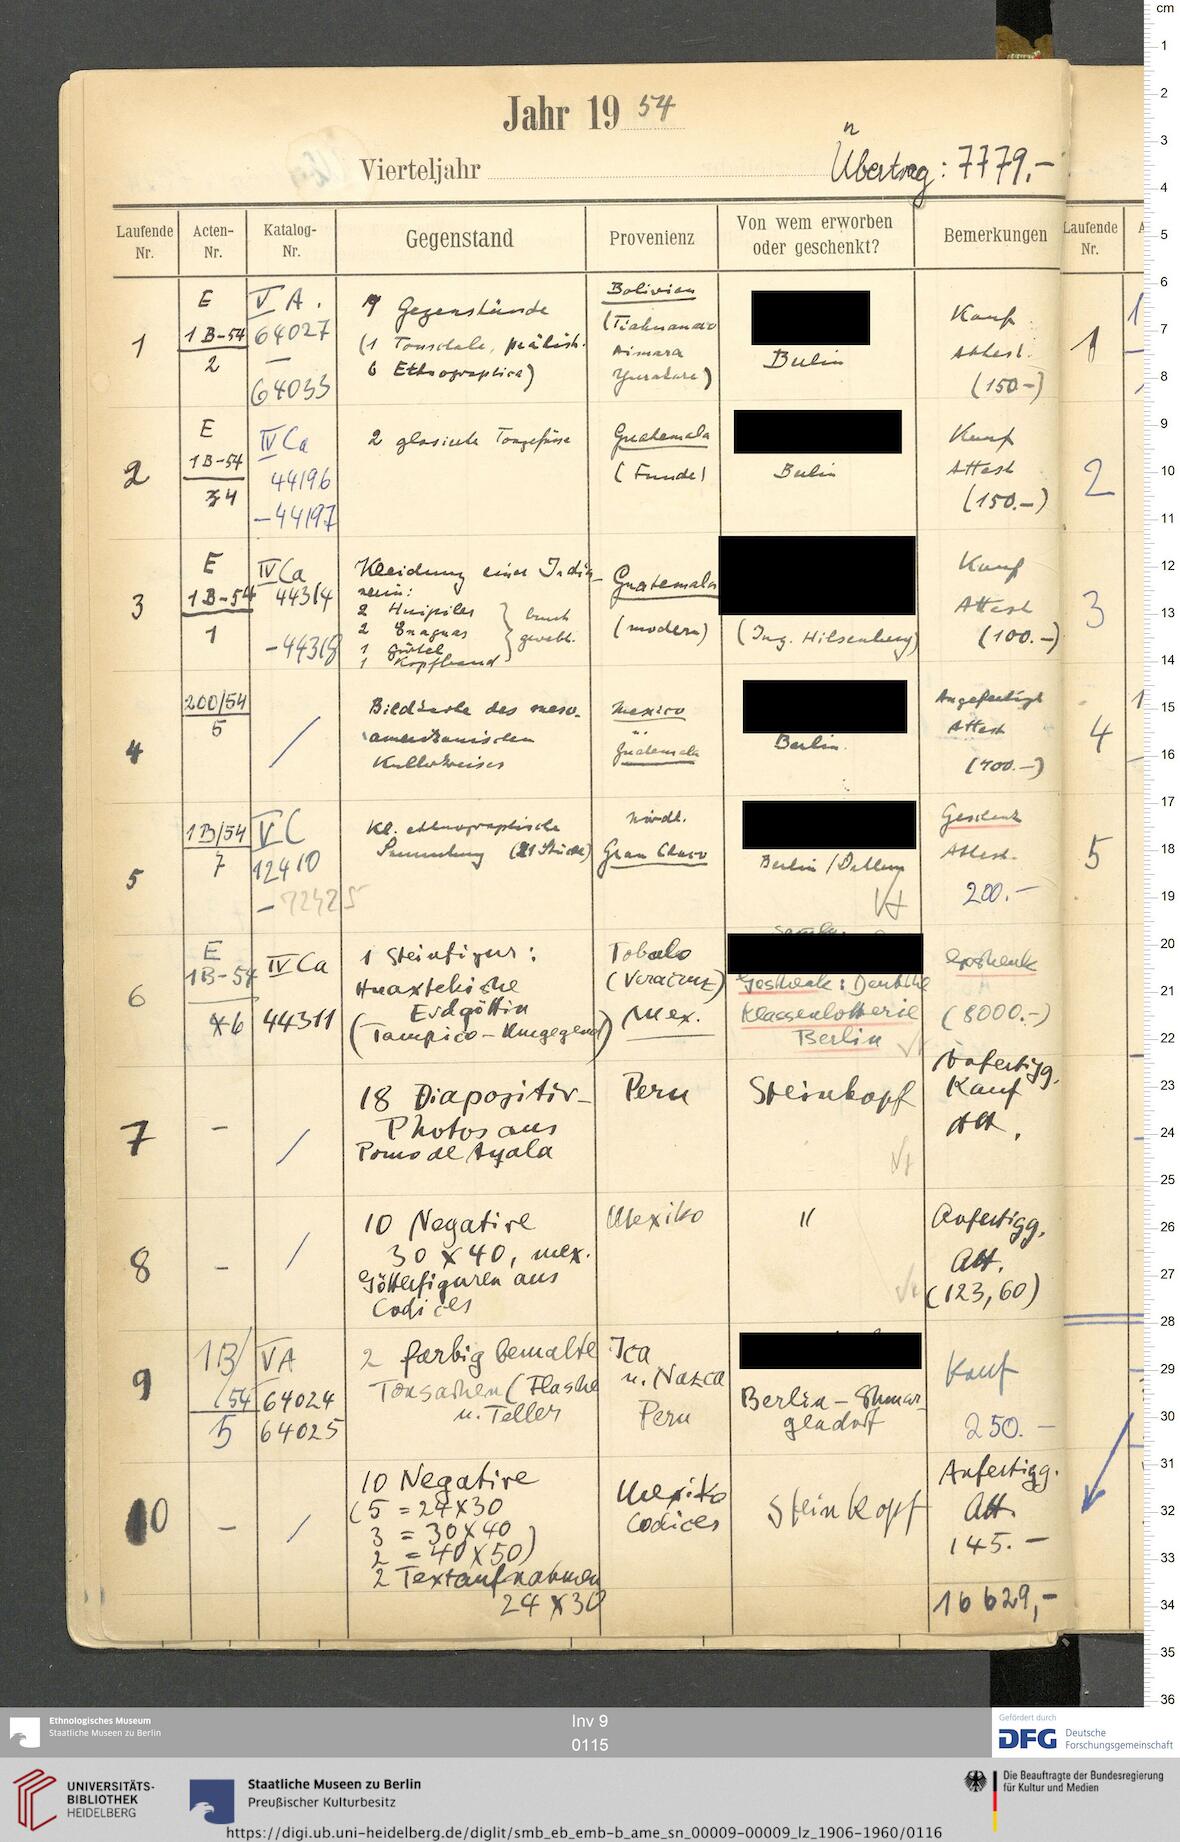 Jahr 19 54
Vierteljahr
Übertrag: 7779,-
Laufende Nr.
Acten-Nr.
Katalog-Nr.
Gegenstand
Provenienz
Von wem erworben oder geschenkt?
Bemerkungen
Laufende Nr.
1
E
1B-54
2
V A.
64027
—
64033
7 Gegenstände
(1 Tonschale, prähist.
6 Ethnographica)
Bolivien
(Tiahuanaco
Aimara
Yurakare)
Berlin
Kauf
Attest.
(150.-)
1
2
E
1B-54
34
IV Ca
44196
-44197
2 glasierte Tongefässe
Guatemala
(Funde)
Berlin
Kauf
Attest
(150.-)
2
3
E
1B-54
1
IV Ca
44314
-44318
Kleidung einer India-
nerin:
2 Huipiles
2 Enaguas
1 Gürtel
1 Kopfband
bunt
gewebt.
Guatemala
(modern)
(Ing. Hilsenberg)
Kauf
Attest
(100.-)
3
4
200/54
5
/
Bildkarte des meso-
amerikanischen
Kulturkreises
Mexico
u.
Guatemala
Berlin.
Angefertigt
Attest
(400.-)
4
5
1B/54
7
V C
12410
-12425
Kl. ethnographische
Sammlung (21 Stücke)
nördl.
Gran Chaco
Berlin/Dahlem
Geschenk
Attest.
200.-
5
6
E
1B-54
6
IV Ca
44311
1 Steinfigur:
Huaxtekische
Erdgöttin
(Tampico-Umgegend)
(Veracruz)
Mex.
Geschenk: Deutsche
Klassenlotterie
Berlin
Geschenk
(8000.-)
7
-
/
18 Diapositiv-
Photos aus
Poma de Ayala
Peru
Steinkopf
Anfertigg.
Kauf
Att.
8
-
/
10 Negative
30 x 40, mex.
Götterfiguren aus
Codices
Mexiko
"
Anfertigg.
Att.
(123,60)
9
1B/
54
5
VA
64024
64025
2 farbig bemalte
Tonsachen (Flasche
u. Teller
Ica
u. Nazca
Peru
Berlin-Schmar-
gendorf
Kauf
250.-
10
-
/
10 Negative
(5 = 24x30
3 = 30x40
2 = 40x50)
2 Textaufnahmen
24 x 30
Mexiko
Codices
Steinkopf
Anfertigg.
Att.
145.-
16629,-
cm
1
2
3
4
5
6
7
8
9
10
11
12
13
14
15
16
17
18
19
20
21
22
23
24
25
26
27
28
29
30
31
32
33
34
35
36
Ethnologisches Museum
Staatliche Museen zu Berlin
Inv 9
0115
Gefördert durch
DFG Deutsche
Forschungsgemeinschaft
UNIVERSITÄTS-
BIBLIOTHEK
HEIDELBERG
Staatliche Museen zu Berlin
Preußischer Kulturbesitz
Die Beauftragte der Bundesregierung
für Kultur und Medien
https://digi.ub.uni-heidelberg.de/diglit/smb_eb_emb-b_ame_sn_00009-00009_lz_1906-1960/0116